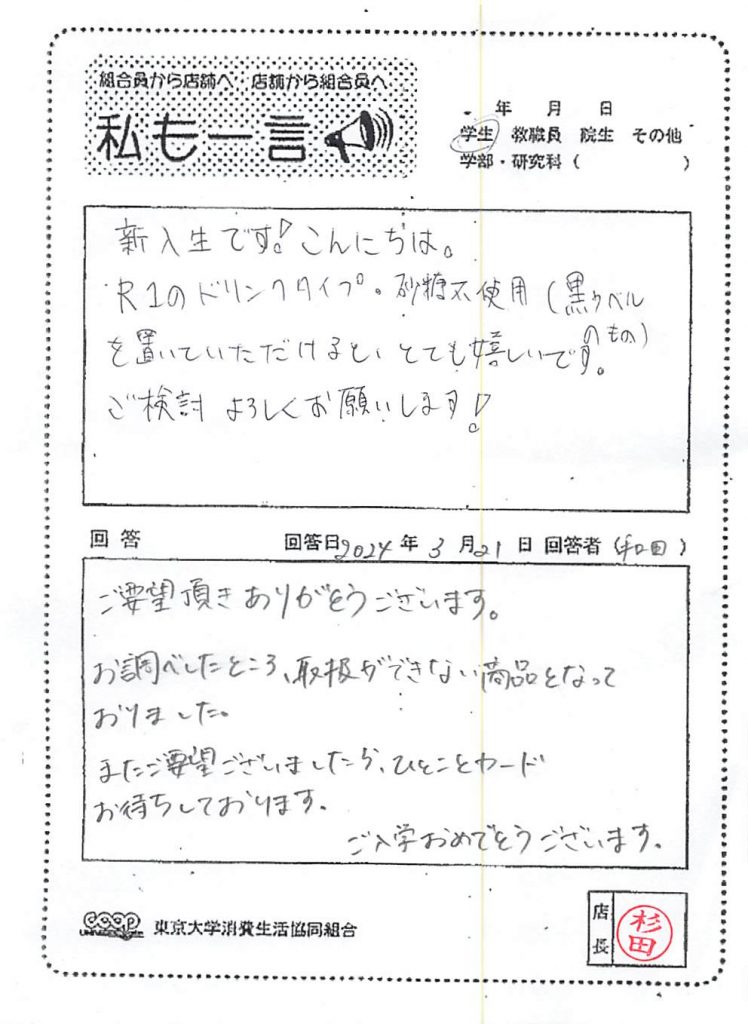 組合員から店舗へ 店舗から組合員へ
私も一言
年 月 日
学生 教職員 院生 その他
学部・研究科 ( )
新入生です!こんにちは。
R1のドリンクタイプ。砂糖不使用(黒ラベル
のもの)
を置いていただけると、とても嬉しいです。
ご検討 よろしくお願いします!
回答 回答日2024年3月21日 回答者(和田)
ご要望頂きありがとうございます。
お調べしたところ、取扱ができない商品となって
おりました。
またご要望ございましたら、ひとことカード
お待ちしております。
ご入学おめでとうございます。
CO-OP
UNIV
東京大学消費生活協同組合
店長
杉田